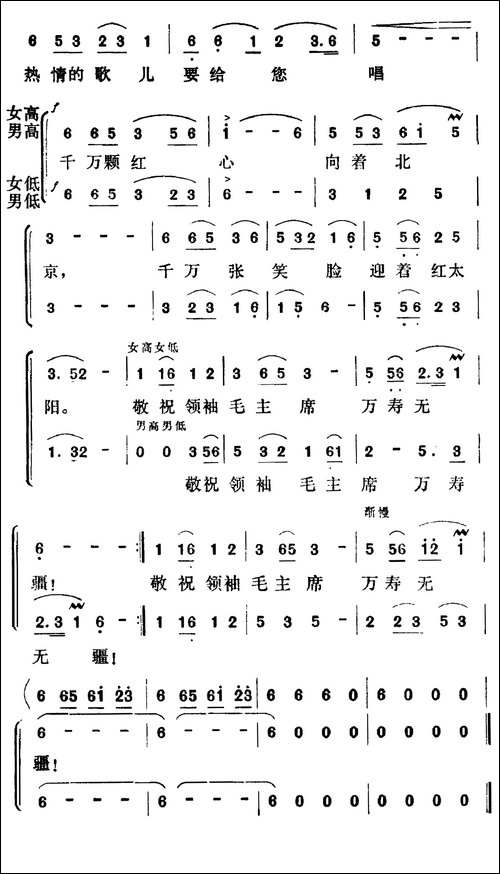 6 53 23 1 | 6 6 1 2 3·6 | 5 - - - |
热情的歌儿 要给您 唱
女高 男高 f 6 65 3 56 | i - - 6 | 5 53 6i 5
千万颗红 心 向着北
女低 男低 f 6 65 3 23 | 6 - - - | 3 1 2 5
3 - - - | 6 65 36 | 532 16 | 5 56 25
京， 千万张笑脸迎着红太
3 - - - | 3 23 16 | 15 6 - | 5 56 23
女高女低
3·52 - - | 1 16 12 | 3 65 3 - | 5 56 2·31
阳。 敬祝领袖毛主席 万寿无
男高男低
1·32 - - | 0 0 356 | 5 32 1 61 | 2 - 5·3
敬祝领袖毛主席万寿
渐慢
6 - - - :| 1 16 12 | 3 65 3 - | 5 56 i2 i
疆！ 敬祝领袖毛主席 万寿无
2·31 6 - :| 1 16 12 | 5 35 - | 2 23 53
无疆！
( 6 65 6i 23 | 6 65 6i 23 | 6 6 6 0 | 6 0 0 0 ‖
6 - - - | 6 - - - | 6 0 0 0 | 0 0 0 0 ‖
疆！
6 - - - | 6 - - - | 6 0 0 0 | 0 0 0 0 ‖